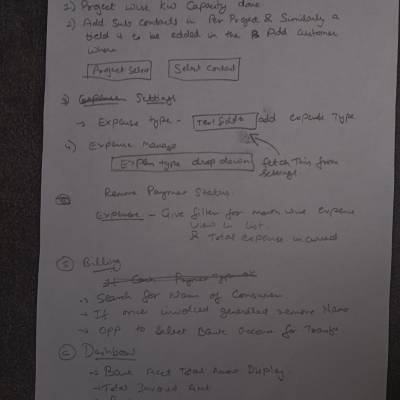 1) Project wise kw Capacity done
2) Add Sub Contacts in Per Project & Similarly a
field is to be added in the B Add Customer
where
Project Select Select Contact
3) Expense Settings
→ Expense type - Text field add expense Type
4) Expense Manage
Expen type drop down fetch This from
Settings
Remove Payment Status.
Expense - Give filter for month wise expense
view in list.
& Total expense incurred
5) Billing
→ Search for Name of Consumer
→ If once invoiced generated remove Name
→ opp to Select Bank Account for
6) Dashboar
→ Bank Acct Total Amou Display.
→ Total Invoice Amt